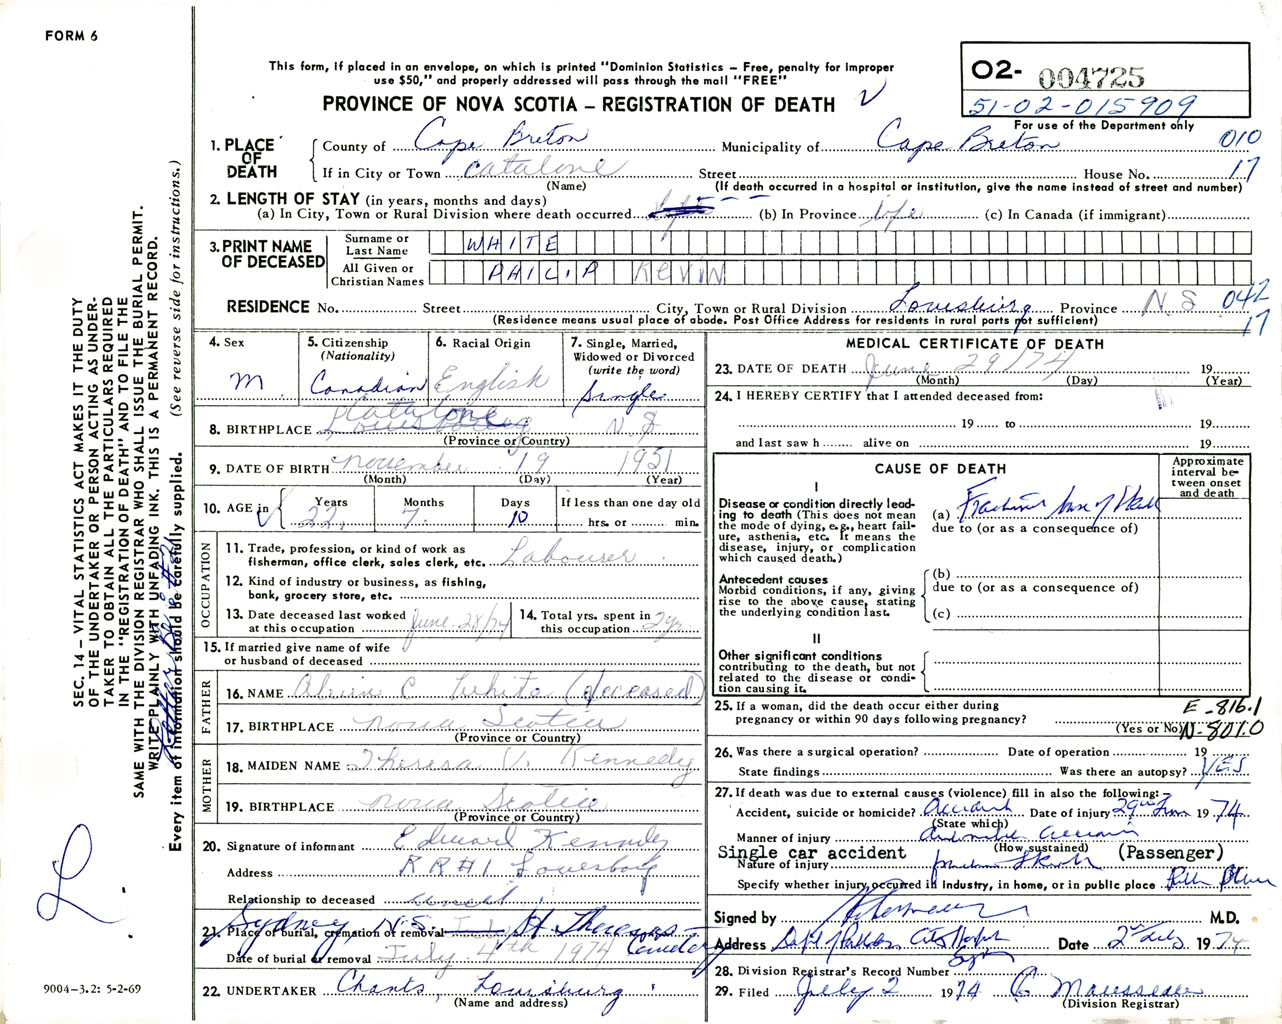 FORM 6
This form, if placed in an envelope, on which is printed "Dominion Statistics – Free, penalty for improper
use $50," and properly addressed will pass through the mail "FREE"
PROVINCE OF NOVA SCOTIA – REGISTRATION OF DEATH
O2- 004725
51-02-015909
For use of the Department only
1. PLACE OF DEATH
County of Cape Breton Municipality of Cape Breton 010
If in City or Town Catalone Street House No. 17
(Name) (If death occurred in a hospital or institution, give the name instead of street and number)
2. LENGTH OF STAY (in years, months and days)
(a) In City, Town or Rural Division where death occurred (b) In Province life (c) In Canada (if immigrant)
3. PRINT NAME OF DECEASED
Surname or Last Name WHITE
All Given or Christian Names PHILIP KEVIN
RESIDENCE No. Street City, Town or Rural Division Louisburg Province N.S 042
(Residence means usual place of abode. Post Office Address for residents in rural parts not sufficient) 17
4. Sex M
5. Citizenship (Nationality) Canadian
6. Racial Origin English
7. Single, Married, Widowed or Divorced (write the word) Single
8. BIRTHPLACE Catalone Louisbourg N.S
(Province or Country)
9. DATE OF BIRTH November 19 1951
(Month) (Day) (Year)
10. AGE in Years 22 Months 7 Days 10 If less than one day old hrs. or min.
OCCUPATION
11. Trade, profession, or kind of work as
fisherman, office clerk, sales clerk, etc. Labourer
12. Kind of industry or business, as fishing,
bank, grocery store, etc.
13. Date deceased last worked
at this occupation June 28/74
14. Total yrs. spent in
this occupation 2 yr.
15. If married give name of wife
or husband of deceased
FATHER
16. NAME C. White (deceased)
17. BIRTHPLACE Nova Scotia
(Province or Country)
MOTHER
18. MAIDEN NAME Theresa V. Kennedy
19. BIRTHPLACE Nova Scotia
(Province or Country)
20. Signature of informant Edward Kennedy
Address RR#1 Louisbourg
Relationship to deceased uncle
21. Place of burial, cremation or removal Sydney, N.S. St. Theresas Cemetery
Date of burial or removal July 4th 1974
22. UNDERTAKER Chants, Louisburg
(Name and address)
MEDICAL CERTIFICATE OF DEATH
23. DATE OF DEATH June 29/74 19
(Month) (Day) (Year)
24. I HEREBY CERTIFY that I attended deceased from:
19 to 19
and last saw h alive on 19
CAUSE OF DEATH
Approximate interval between onset and death
I
Disease or condition directly lead-
ing to death (This does not mean
the mode of dying, e.g., heart fail-
ure, asthenia, etc. It means the
disease, injury, or complication
which caused death.)
(a) Fracture base of skull
due to (or as a consequence of)
Antecedent causes
Morbid conditions, if any, giving
rise to the above cause, stating
the underlying condition last.
(b)
due to (or as a consequence of)
(c)
II
Other significant conditions
contributing to the death, but not
related to the disease or condi-
tion causing it.
25. If a woman, did the death occur either during
pregnancy or within 90 days following pregnancy?
(Yes or No)
E-816.1
N-801.0
26. Was there a surgical operation? Date of operation 19
State findings Was there an autopsy? YES
27. If death was due to external causes (violence) fill in also the following:
Accident, suicide or homicide? Accident Date of injury 29 June 1974
(State which)
Manner of injury automobile accident
(How sustained)
Single car accident (Passenger)
Nature of injury fracture skull
Specify whether injury occurred in industry, in home, or in public place Public Place
Signed by M.D.
Address Dept of City Hospital Date 2nd July 1974
28. Division Registrar's Record Number
29. Filed July 2 1974
(Division Registrar)
SEC. 14 – VITAL STATISTICS ACT MAKES IT THE DUTY
OF THE UNDERTAKER OR PERSON ACTING AS UNDER-
TAKER TO OBTAIN ALL THE PARTICULARS REQUIRED
IN THE "REGISTRATION OF DEATH" AND TO FILE THE
SAME WITH THE DIVISION REGISTRAR WHO SHALL ISSUE THE BURIAL PERMIT.
WRITE PLAINLY WITH UNFADING INK. THIS IS A PERMANENT RECORD.
Every item of information should be carefully supplied. (See reverse side for instructions.)
9004-3.2: 5-2-69